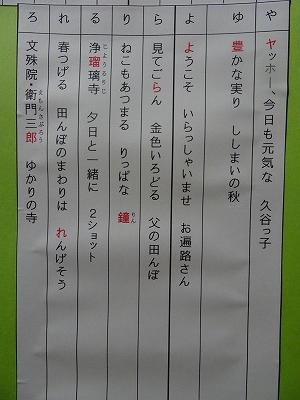 や ヤッホー、今日も元気な 久谷っ子
ゆ 豊かな実り ししまいの秋
よ ようこそ いらっしゃいませ お遍路さん
ら 見てごらん 金色いろどる 父の田んぼ
り ねこもあつまる りっぱな 鐘(りん)
る 浄瑠璃寺(じょうるりじ) 夕日と一緒に 2ショット
れ 春つげる 田んぼのまわりは れんげそう
ろ 文殊院・衛門三郎(えもんさぶろう) ゆかりの寺